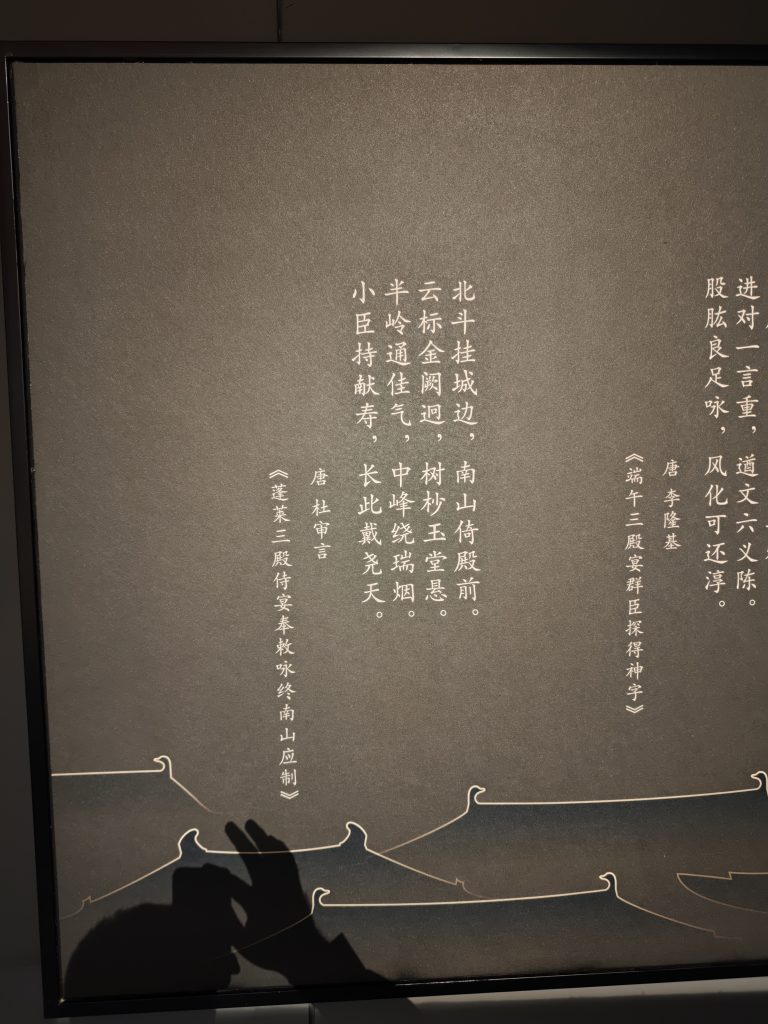 进对一言重，遒文六义陈。
股肱良足咏，风化可还淳。
唐 李隆基
《端午三殿宴群臣探得神字》
北斗挂城边，南山倚殿前。
云标金阙迥，树杪玉堂悬。
半岭通佳气，中峰绕瑞烟。
小臣持献寿，长此戴尧天。
唐 杜审言
《蓬莱三殿侍宴奉敕咏终南山应制》